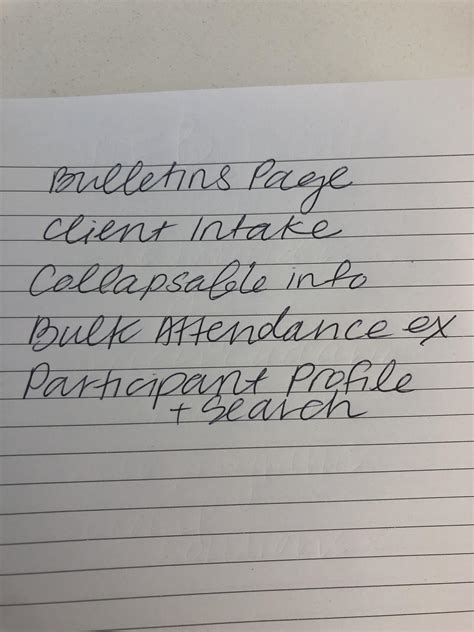 Bulletins Page
Client Intake
Collapsable info
Bulk Attendance ex
Participant Profile
+ Search